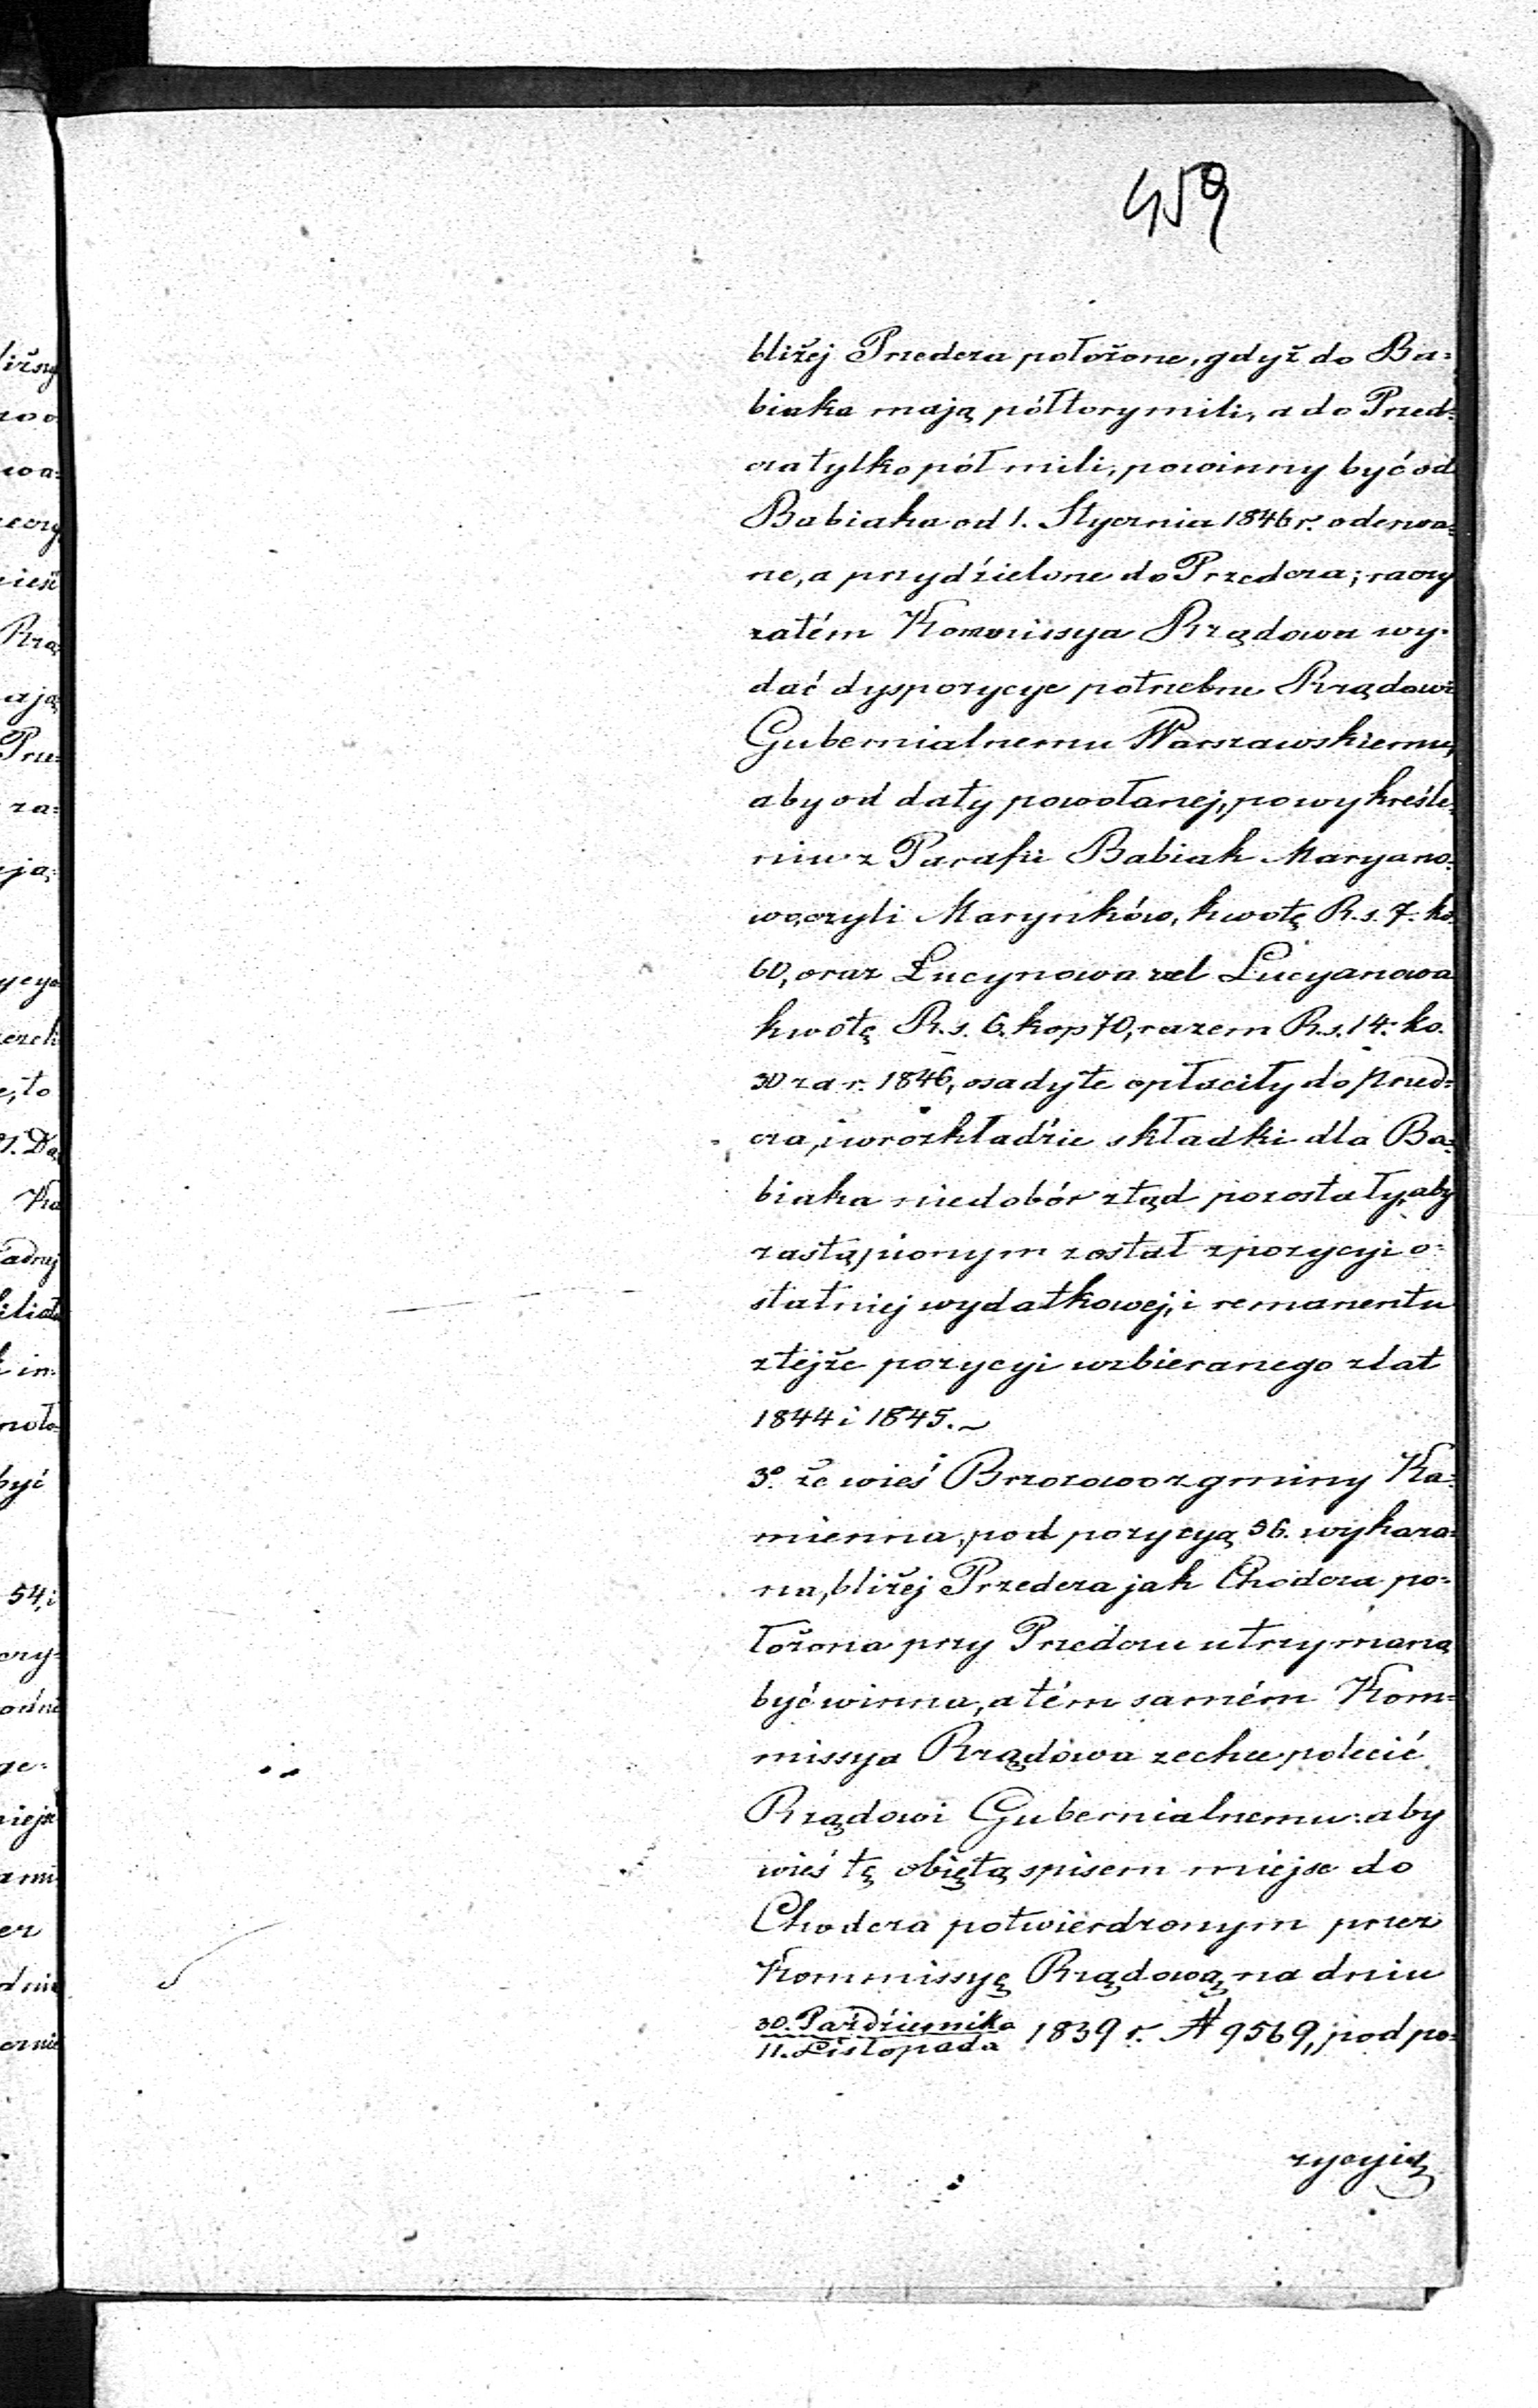 459
bliżej Przedcza położone, gdyż do Ba=
biaka mają półtory mili, a do Przed=
cza tylko pół mili, powinny być od
Babiaka od 1. Stycznia 1846 r. oderwa=
ne, a przydzielone do Przedcza; raczy
zatém Kommissya Rządowa wy=
dać dyspozycye potrzebne Rządowi
Gubernialnemu Warszawskiemu,
aby od daty powołanej, po wykreśle=
niu z Parafii Babiak Maryano=
wo, czyli Marynków, kwotę R.s. 7. ko.
60, oraz Lucynowa vel Lucyanowa
kwotę R.s. 6. kop 70, razem R.s. 14. ko.
30 za r. 1846, osady te opłaciły do Przed=
cza, i w rozkładzie składki dla Ba=
biaka niedobór ztąd pozostały, aby
zastąpionym został z pozycyi o=
statniej wydatkowej, i remanentu
z tejże pozycyi uzbieranego z lat
1844 i 1845.~
3º. że wieś Brzozowo z gminy Ka=
mienna, pod pozycyą 56. wykaza=
na, bliżej Przedcza jak Chodcza po=
łożona przy Przedczu utrzymaną
być winna, a tém samém Kom=
missya Rządowa zechce polecić
Rządowi Gubernialnemu: aby
wieś tę objętą spisem miejsc do
Chodcza potwierdzonym przez
Kommissyę Rządową na dniu
30. Października
11. Listopada 1839 r. N 9569, pod po=
zycyią